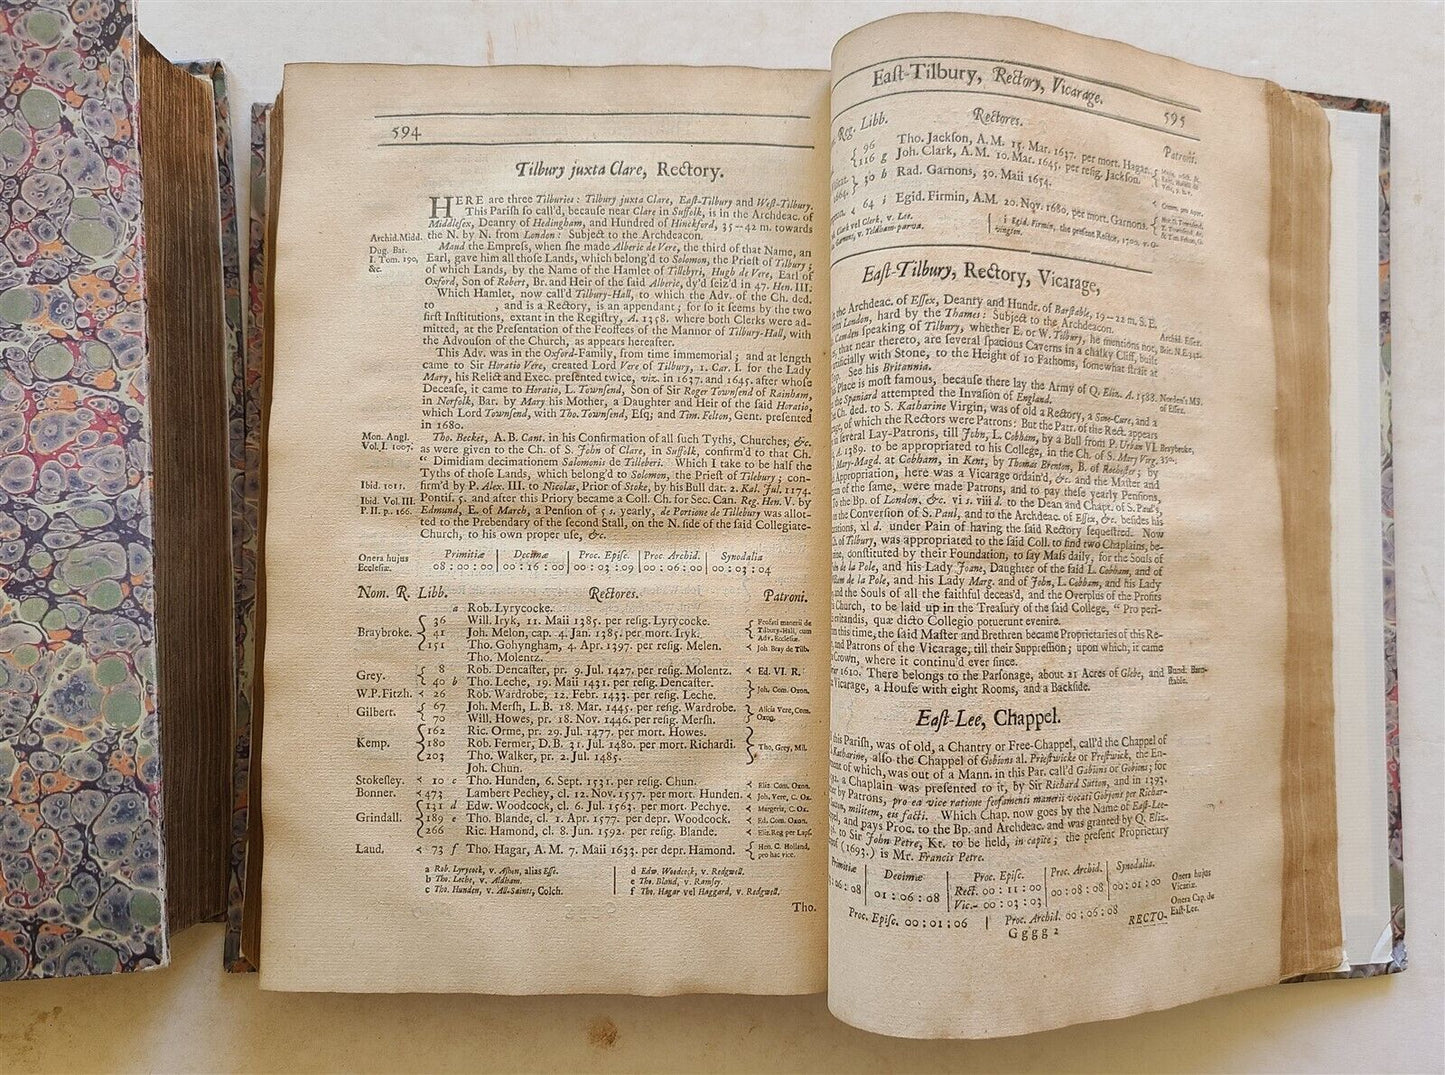 594
Tilbury juxta Clare, Rectory.
HERE are three Tilburies: Tilbury juxta Clare, Eaſt-Tilbury and Weſt-Tilbury.
This Pariſh ſo call'd, becauſe near Clare in Suffolk, is in the Archdeac. of
Middleſex, Deanry of Hedingham, and Hundred of Hinckford, 35—42 m. towards
Archid.Midd. the N. by N. from London: Subject to the Archdeacon.
Dug. Bar. Maud the Empreſs, when ſhe made Alberic de Vere, the third of that Name, an
I. Tom. 190, Earl, gave him all thoſe Lands, which belong'd to Solomon, the Prieſt of Tilbury;
&c. of which Lands, by the Name of the Hamlet of Tillebyri, Hugh de Vere, Earl of
Oxford, Son of Robert, Br. and Heir of the ſaid Alberic, dy'd ſeiz'd in 47. Hen. III.
Which Hamlet, now call'd Tilbury-Hall, to which the Adv. of the Ch. ded.
to , and is a Rectory, is an appendant; for ſo it ſeems by the two
firſt Inſtitutions, extant in the Regiſtry, A. 1358. where both Clerks were ad-
mitted, at the Preſentation of the Feoffees of the Mannor of Tilbury-Hall, with
the Advouſon of the Church, as appears hereafter.
This Adv. was in the Oxford-Family, from time immemorial; and at length
came to Sir Horatio Vere, created Lord Vere of Tilbury, 1. Car. I. for the Lady
Mary, his Relict and Exec. preſented twice, viz. in 1637. and 1645. after whoſe
Deceaſe, it came to Horatio, L. Townſend, Son of Sir Roger Townſend of Rainham,
in Norfolk, Bar. by Mary his Mother, a Daughter and Heir of the ſaid Horatio,
which Lord Townſend, with Tho. Townſend, Eſq; and Tim. Felton, Gent. preſented
in 1680.
Mon. Angl. Tho. Becket, A.B. Cant. in his Confirmation of all ſuch Tyths, Churches, &c.
Vol. I. 1007. as were given to the Ch. of S. John of Clare, in Suffolk, confirm'd to that Ch.
“ Dimidiam decimationem Salomonis de Tilleberi. Which I take to be half the
Tyths of thoſe Lands, which belong'd to Solomon, the Prieſt of Tilbury; con-
Ibid. 1011. firm'd by P. Alex. III. to Nicolas, Prior of Stoke, by his Bull dat. 2. Kal. Jul. 1174.
Ibid. Vol. III. Pontif. 5. and after this Priory became a Coll. Ch. for Sec. Can. Reg. Hen. V. by
P. II. p. 166. Edmund, E. of March, a Penſion of 5 s. yearly, de Portione de Tilbury was allot-
ted to the Prebendary of the ſecond Stall, on the N. ſide of the ſaid Collegiate-
Church, to his own proper uſe, &c.
Onera hujus Eccleſiæ. Primitiæ | Decimæ | Proc. Epiſc. | Proc. Archid. | Synodalia
08 : 00 : 00 | 00 : 16 : 00 | 00 : 03 : 09 | 00 : 06 : 00 | 00 : 03 : 04
Nom. R. Libb. Rectores. Patroni.
a Rob. Lyrycocke.
36 Will. Iryk, 11. Maii 1385. per reſig. Lyrycocke.
Braybroke. 41 Joh. Melon, cap. 4. Jan. 1385. per mort. Iryk. Profati manerii de Tilbury-Hall, cum Adv. Eccleſiæ.
151 Tho. Gohyngham, 4. Apr. 1397. per reſig. Melen. Joh Bray de Tilb.
Tho. Molentz.
Grey. 8 Rob. Dencaſter, pr. 9. Jul. 1427. per reſig. Molentz. Ed. VI. R.
40 b Tho. Leche, 19. Maii 1431. per reſig. Dencaſter.
W.P.Fitzh. 26 Rob. Wardrobe, 12. Febr. 1433. per reſig. Leche. Joh. Com. Oxon.
Gilbert. 67 Joh. Merſh, L.B. 18. Mar. 1445. per reſig. Wardrobe. Alicia Vere, Com. Oxon.
70 Will. Howes, pr. 18. Nov. 1446. per reſig. Merſh.
162 Ric. Orme, pr. 29. Jul. 1477. per mort. Howes.
Kemp. 180 Rob. Fermer, D.B. 31. Jul. 1480. per mort. Richardi. Tho. Grey, Mil.
203 Tho. Walker, pr. 2. Jul. 1485.
Joh. Chun.
Stokeſley. 10 c Tho. Hunden, 6. Sept. 1531. per reſig. Chun. Eliz. Com. Oxon.
Bonner. 473 Lambert Pechey, cl. 12. Nov. 1557. per mort. Hunden. Joh. Vere, C. Ox.
131 d Edw. Woodcock, cl. 6. Jul. 1563. per mort. Pechye. Margeria, C. Ox.
Grindall. 189 e Tho. Blande, cl. 1. Apr. 1577. per depr. Woodcock. Ed. Com. Oxon.
266 Ric. Hamond, cl. 8. Jun. 1592. per reſig. Blande. Eliz.Reg per Lapſ.
Laud. 73 f Tho. Hagar, A.M. 7. Maii 1633. per depr. Hamond. Hen. C. Holland, pro hac vice.
a Rob. Lyrycock, v. Aſhen, alias Eſſe. d Edw. Woodcock, v. Redgwell.
b Tho. Leche, v. Aldham. e Tho. Bland, v. Ramſey.
c Tho. Hunden, v. All-Saints, Colch. f Tho. Hagar vel Haggard, v. Redgwell.
Tho.
Eaſt-Tilbury, Rectory, Vicarage.
595
Reg. Libb. Rectores. Patroni.
96 Tho. Jackſon, A.M. 15. Mar. 1637. per mort. Hagar.
116 g Joh. Clark, A.M. 10. Mar. 1645. per reſig. Jackſon.
30 h Rad. Garnons, 30. Maii 1654.
64 i Egid. Firmin, A.M. 20. Nov. 1680. per mort. Garnons.
Clark vel Clerk, v. Lee. i Egid. Firmin, the preſent Rector, 1700. v. O-
Garnons, v. Yeldham-parva. vington.
Eaſt-Tilbury, Rectory, Vicarage,
the Archdeac. of Eſſex, Deanry and Hundr. of Barſtable, 19—22 m. S. E.
London, hard by the Thames: Subject to the Archdeacon. Archid. Eſſex.
Camden ſpeaking of Tilbury, whether E. or W. Tilbury, he mentions not,
that near thereto, are ſeveral ſpacious Caverns in a chalky Cliff, built
with Stone, to the Height of 10 Fathoms, ſomewhat ſtrait at
See his Britannia.
Place is moſt famous, becauſe there lay the Army of Q. Eliz. A. 1588. Norden's MS. of Eſſex.
the Spaniard attempted the Invaſion of England.
Ch. ded. to S. Katharine Virgin, was of old a Rectory, a Sine-Cure, and a
of which the Rectors were Patrons: But the Patr. of the Rect. appears
ſeveral Lay-Patrons, till John, L. Cobham, by a Bull from P. Urban VI. Braybroke,
A. 1389. to be appropriated to his College, in the Ch. of S. Mary Virg.
Mary-Magd. at Cobham, in Kent, by Thomas Brenton, B. of Rocheſter; by
Appropriation, here was a Vicarage ordain'd, &c. and the Maſter and
of the ſame, were made Patrons, and to pay theſe yearly Penſions,
To the Bp. of London, &c. vi s. viii d. to the Dean and Chapt. of S. Paul's,
the Converſion of S. Paul, and to the Archdeac. of Eſſex, &c. beſides his
xl d. under Pain of having the ſaid Rectory ſequeſtred. Now
of Tilbury, was appropriated to the ſaid Coll. to find two Chaplains, be-
conſtituted by their Foundation, to ſay Maſs daily, for the Souls of
de la Pole, and his Lady Joane, Daughter of the ſaid L. Cobham, and of
de la Pole, and his Lady Marg. and of John, L. Cobham, and his Lady
and the Souls of all the faithful deceas'd, and the Overplus of the Profits
Church, to be laid up in the Treaſury of the ſaid College, “ Pro peri-
evitandis, quæ dicto Collegio potuerunt evenire.
this time, the ſaid Maſter and Brethren became Proprietaries of this Re-
and Patrons of the Vicarage, till their Suppreſſion; upon which, it came
Crown, where it continu'd ever ſince.
1610. There belongs to the Parſonage, about 21 Acres of Glebe, and
Vicarage, a Houſe with eight Rooms, and a Backſide.
Eaſt-Lee, Chappel.
this Pariſh, was of old, a Chantry or Free-Chappel, call'd the Chappel of
Katharine, alſo the Chappel of Gobions al. Prieſtwicke or Preſtwick, the En-
of which, was out of a Mann. in this Par. call'd Gabions or Gobions; for
a Chaplain was preſented to it, by Sir Richard Sutton, and in 1393.
by Patrons, pro ea vice ratione feofamenti manerii vocati Gobyons per Richar-
militem, eis facti. Which Chap. now goes by the Name of Eaſt-Lee-
and pays Proc. to the Bp. and Archdeac. and was granted by Q. Eliz.
to Sir John Petre, Kt. to be held, in capite; the preſent Proprietary
(1693.) is Mr. Francis Petre.
Primitiæ | Decimæ | Proc. Epiſc. | Proc. Archid. | Synodalia. Onera hujus Vicariæ.
06 : 08 | 01 : 06 : 08 | Rect. 00 : 11 : 00 | 00 : 08 : 08 | 00 : 01 : 00
Vic.— 00 : 03 : 03
Proc. Epiſc. 00 : 01 : 06 | Proc. Archid. 00 : 06 : 08 Onera Cap. de Eaſt-Lee.
Gggg 2 RECTO-